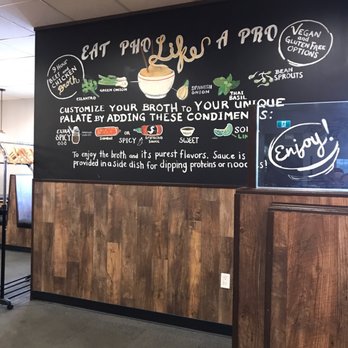 EAT PHO Like A PRO
9 HOUR
BEEF AND
CHICKEN
Broth
VEGAN
and
GLUTEN FREE
OPTIONS
CILANTRO
GREEN ONION
SPANISH
ONION
THAI
BASIL
BEAN
SPROUTS
CUSTOMIZE YOUR BROTH to YOUR UNIQUE
PALATE BY ADDING THESE CONDIMENTS:
EXTRA
SPICY
OR
SPICY
SWEET
To enjoy the broth and it's purest flavors, Sauce is
provided in a side dish for dipping proteins or
Enjoy!